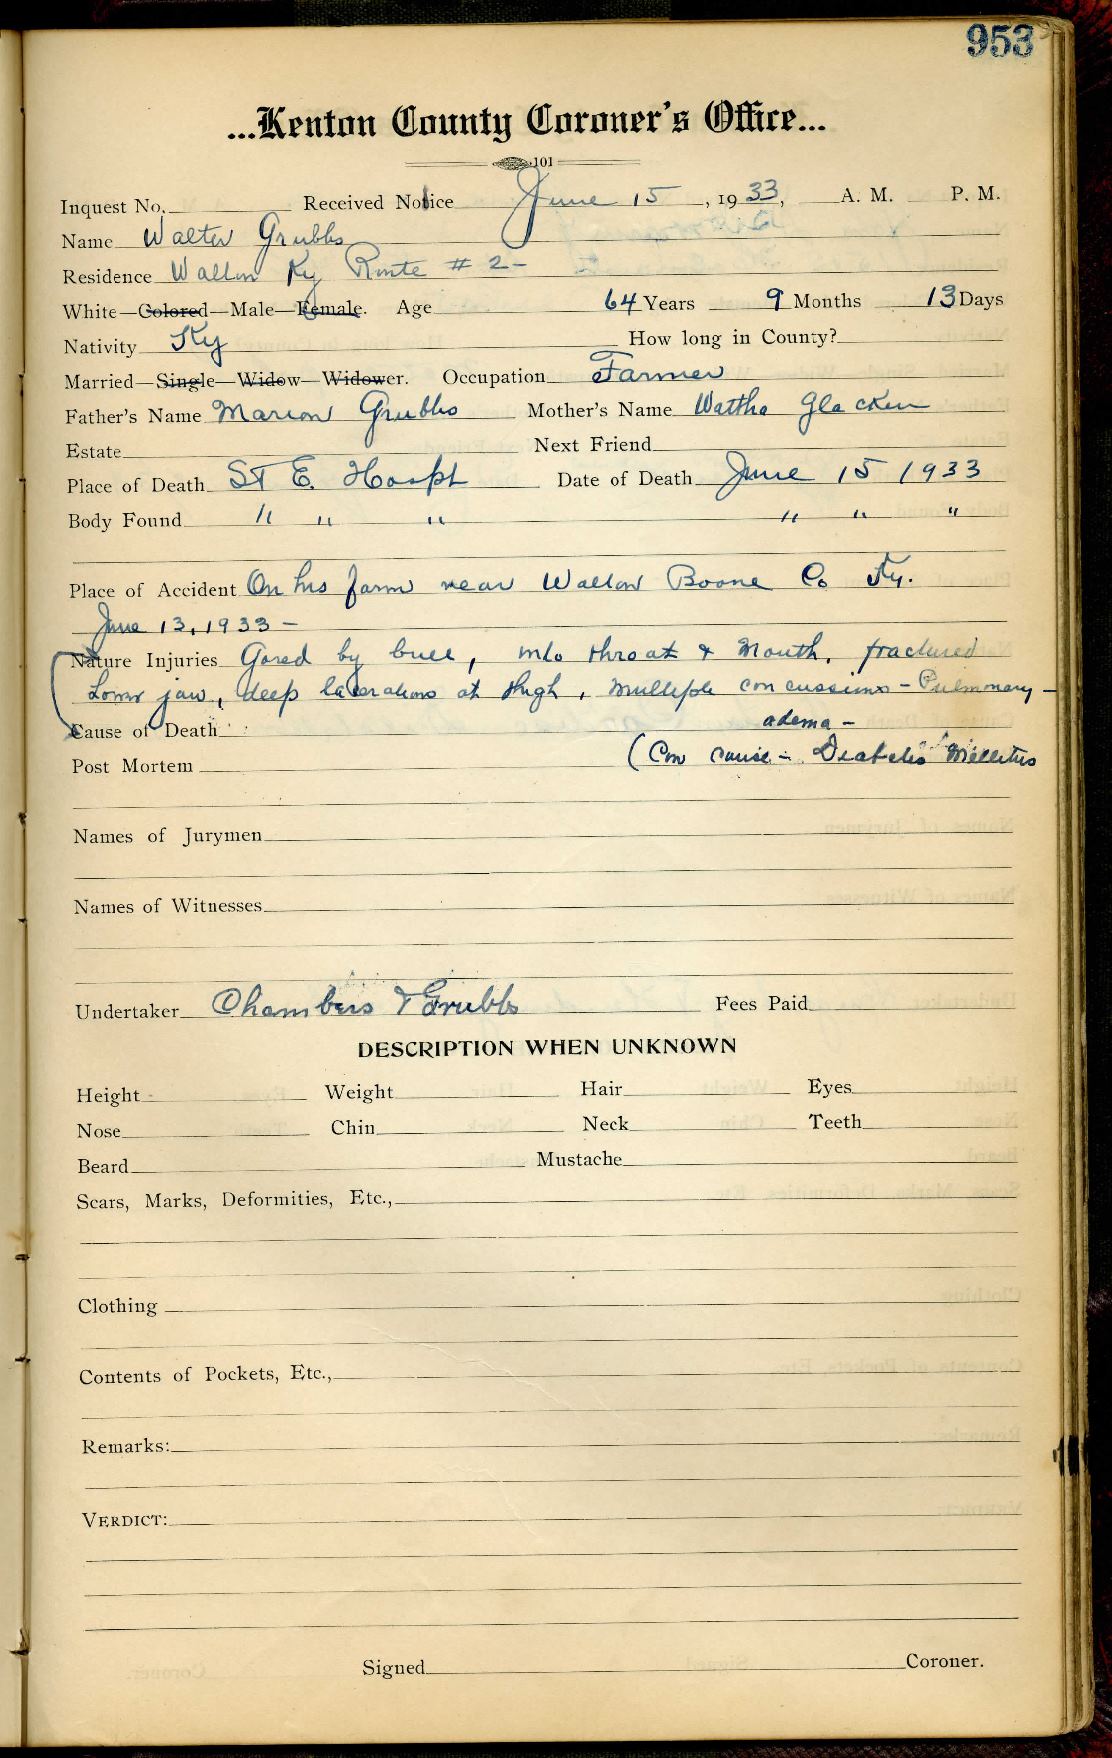 953
...Kenton County Coroner's Office...
101
Inquest No. Received Notice June 15, 1933, A. M. P. M.
Name Walter Grubbs
Residence Walton Ky Route # 2-
White—Colored—Male—Female. Age 64 Years 9 Months 13 Days
Nativity Ky How long in County?
Married—Single—Widow—Widower. Occupation Farmer
Father's Name Marion Grubbs Mother's Name Wattha Glacken
Estate Next Friend
Place of Death ST E. Hospt Date of Death June 15 1933
Body Found " " " " " "
Place of Accident On his farm near Walton Boone Co Ky.
June 13, 1933 -
Nature Injuries Gored by bull, into throat & Mouth, fractured
Lower jaw, deep lacerations at thigh, multiple concussions - Pulmonary -
Cause of Death adema -
Post Mortem (Con cause - Diabetes Mellitus
Names of Jurymen
Names of Witnesses
Undertaker Chambers & Grubbs Fees Paid
DESCRIPTION WHEN UNKNOWN
Height Weight Hair Eyes
Nose Chin Neck Teeth
Beard Mustache
Scars, Marks, Deformities, Etc.,
Clothing
Contents of Pockets, Etc.,
Remarks:
VERDICT:
Signed Coroner.